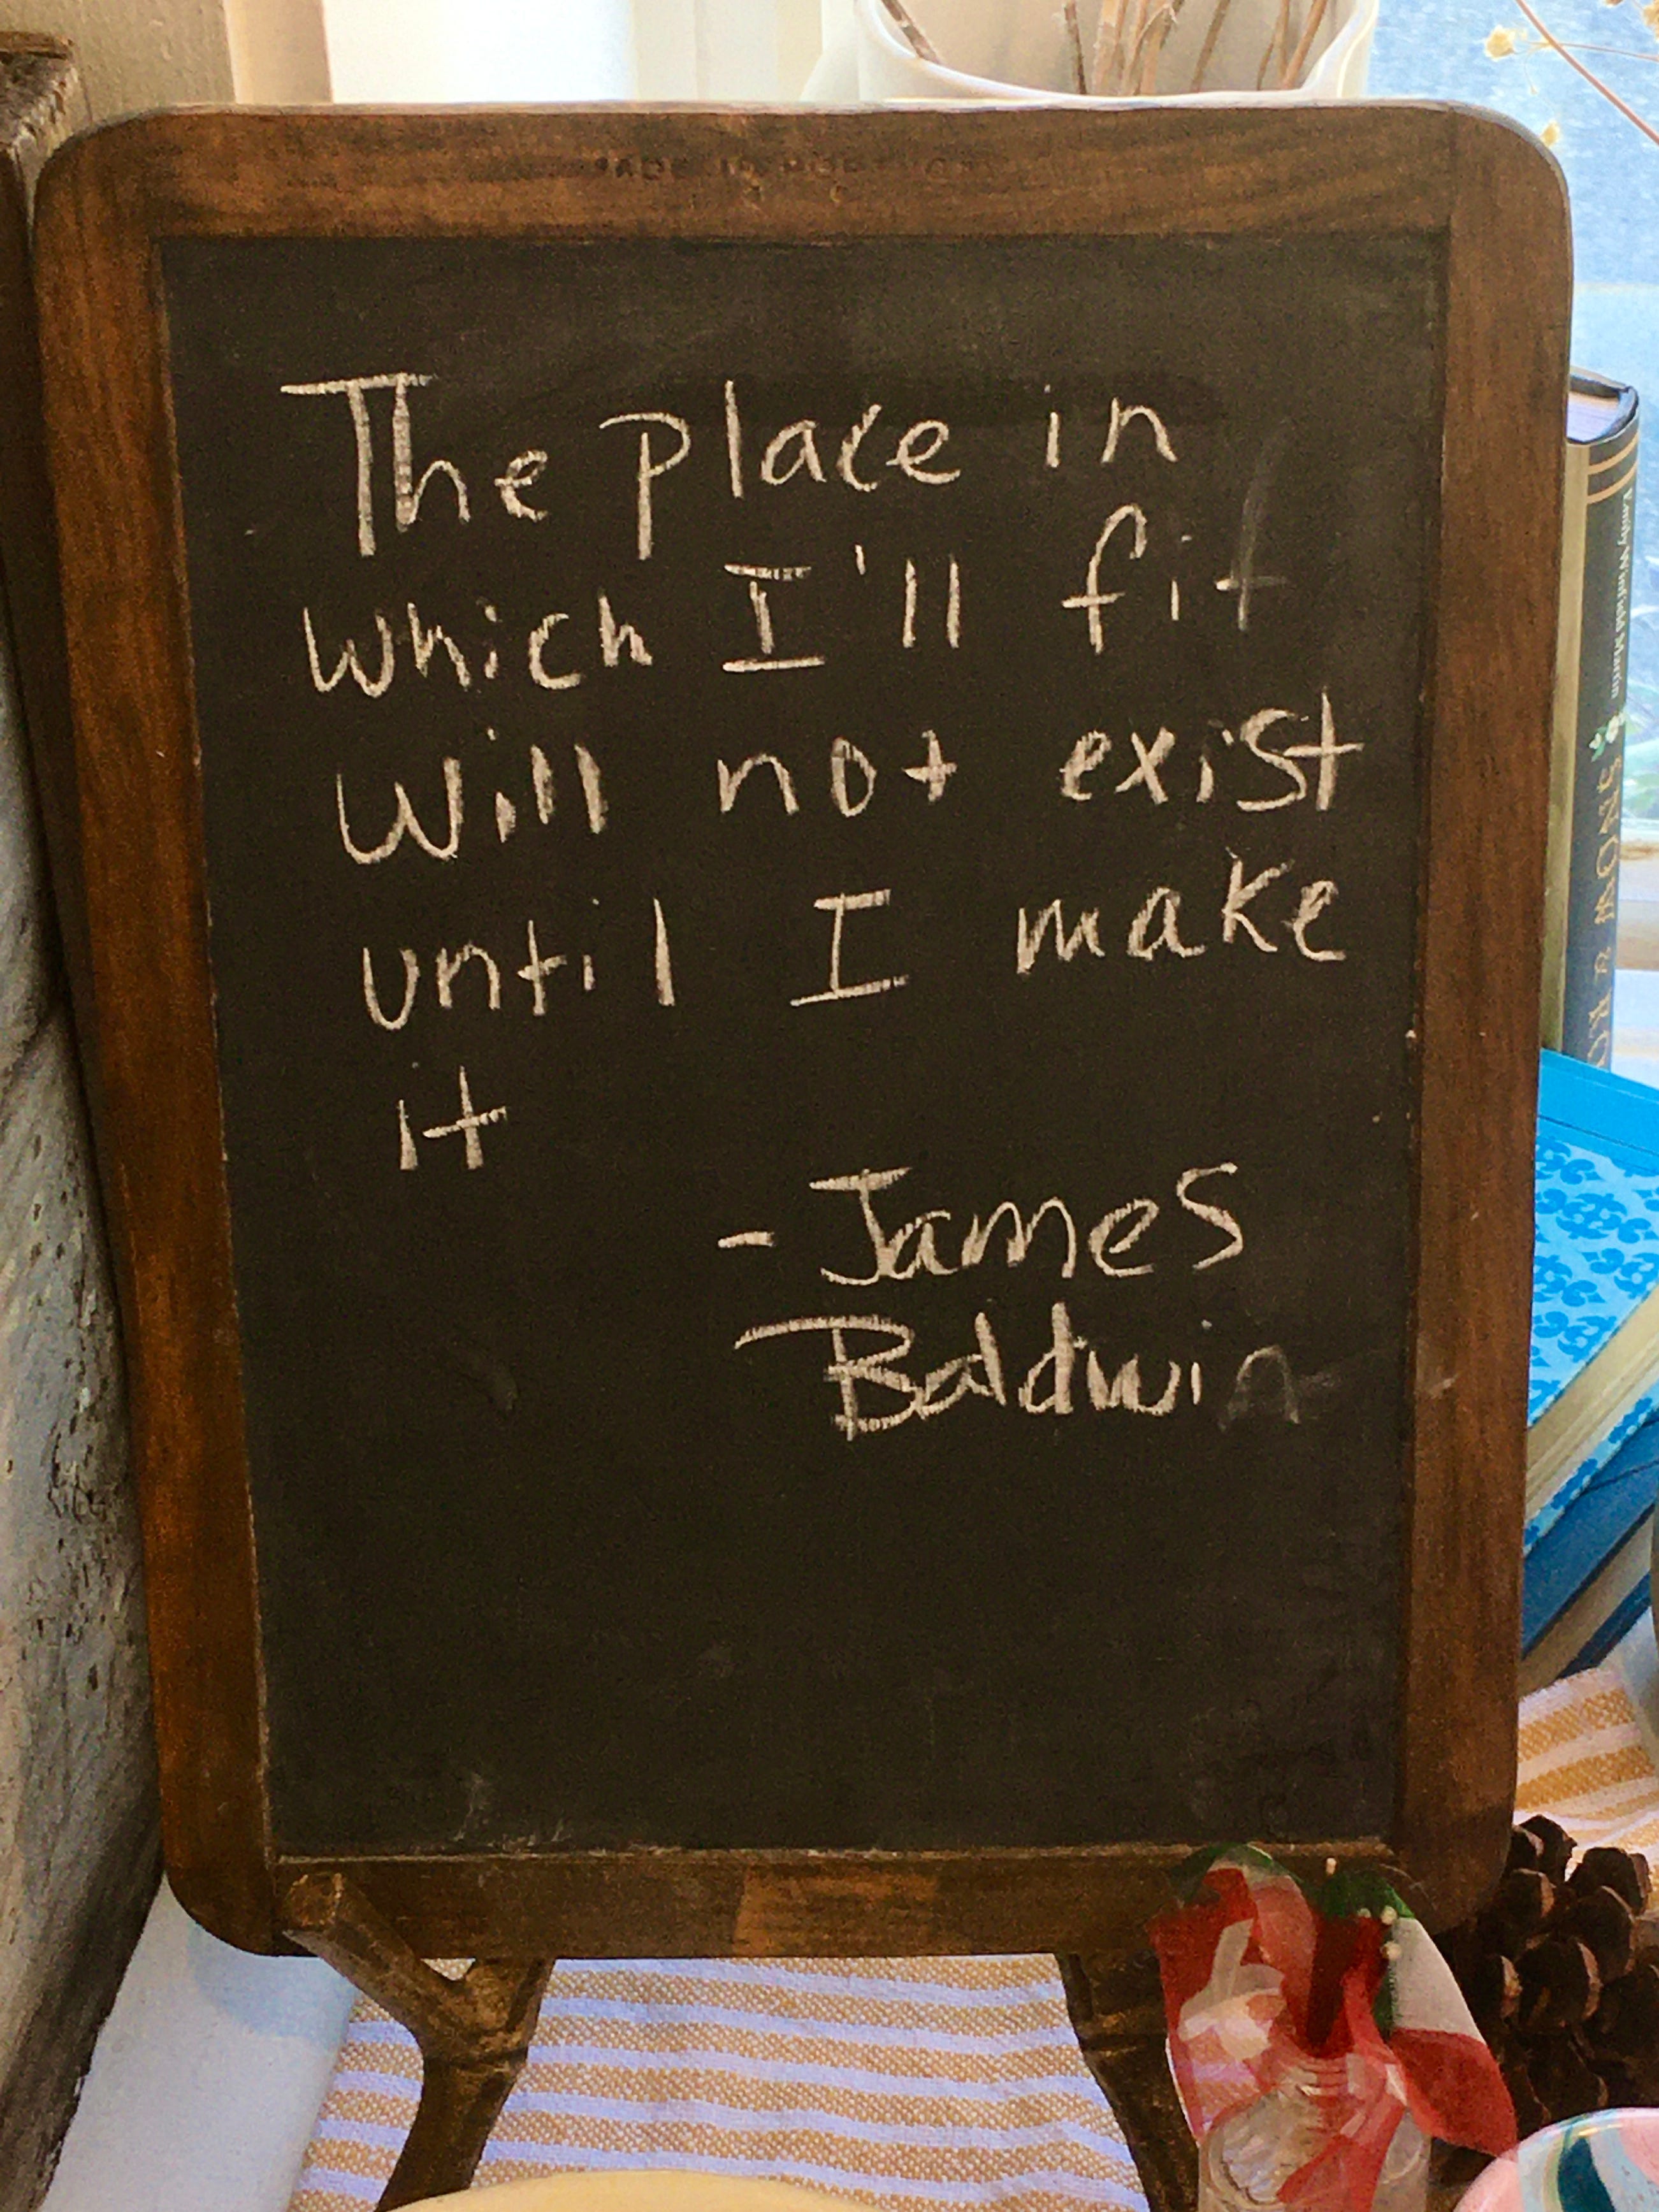 The place in
which I'll fit
will not exist
until I make
it
- James
Baldwin